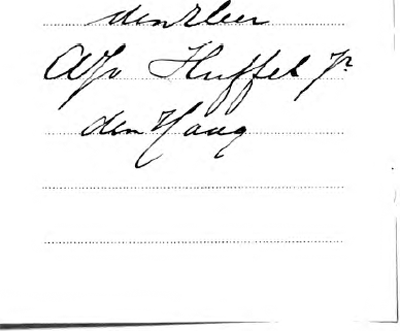 den Heer
AJv Huffel Jr
den Haag